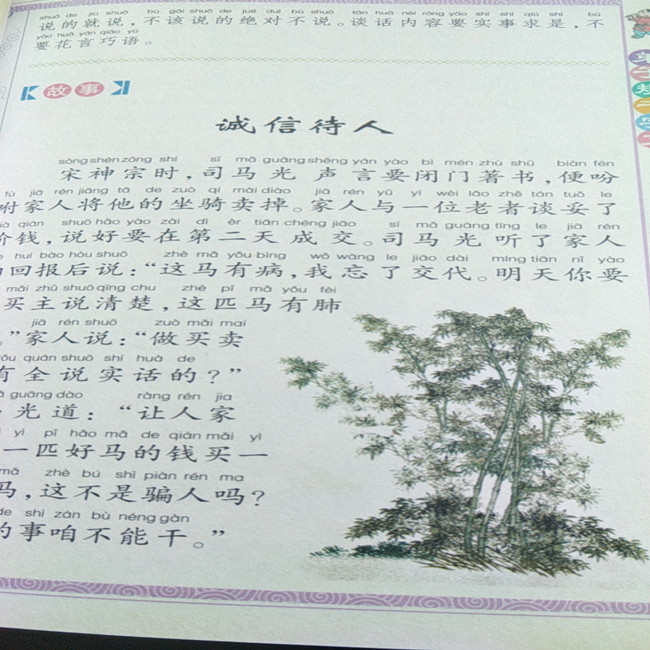 shuō de jiù shuō bù gāi shuō de jué duì bù shuō tán huà nèi róng yào shí shì qiú shì bú
说的就说，不该说的绝对不说。谈话内容要实事求是，不
yào huā yán qiǎo yǔ
要花言巧语。
故事
诚信待人
sòng shén zōng shí sī mǎ guāng shēng yán yào bì mén zhù shū biàn fēn
宋神宗时，司马光声言要闭门著书，便吩
fù jiā rén jiāng tā de zuò qí mài diào jiā rén yǔ yí wèi lǎo zhě tán tuǒ le
咐家人将他的坐骑卖掉。家人与一位老者谈妥了
jià qián shuō hǎo yào zài dì èr tiān chéng jiāo sī mǎ guāng tīng le jiā rén
价钱，说好要在第二天成交。司马光听了家人
huí bào hòu shuō zhè mǎ yǒu bìng wǒ wàng le jiāo dài míng tiān nǐ yào
回报后说：“这马有病，我忘了交代。明天你要
mǎi zhǔ shuō qīng chu zhè pǐ mǎ yǒu fèi
买主说清楚，这匹马有肺
jiā rén shuō zuò mǎi mai
。”家人说：“做买卖
yǒu quán shuō shí huà de
有全说实话的？”
guāng dào ràng rén jia
光道：“让人家
yì pǐ hǎo mǎ de qián mǎi yì
一匹好马的钱买一
mǎ zhè bú shì piàn rén ma
马，这不是骗人吗？
de shì zán bù néng gàn
的事咱不能干。”